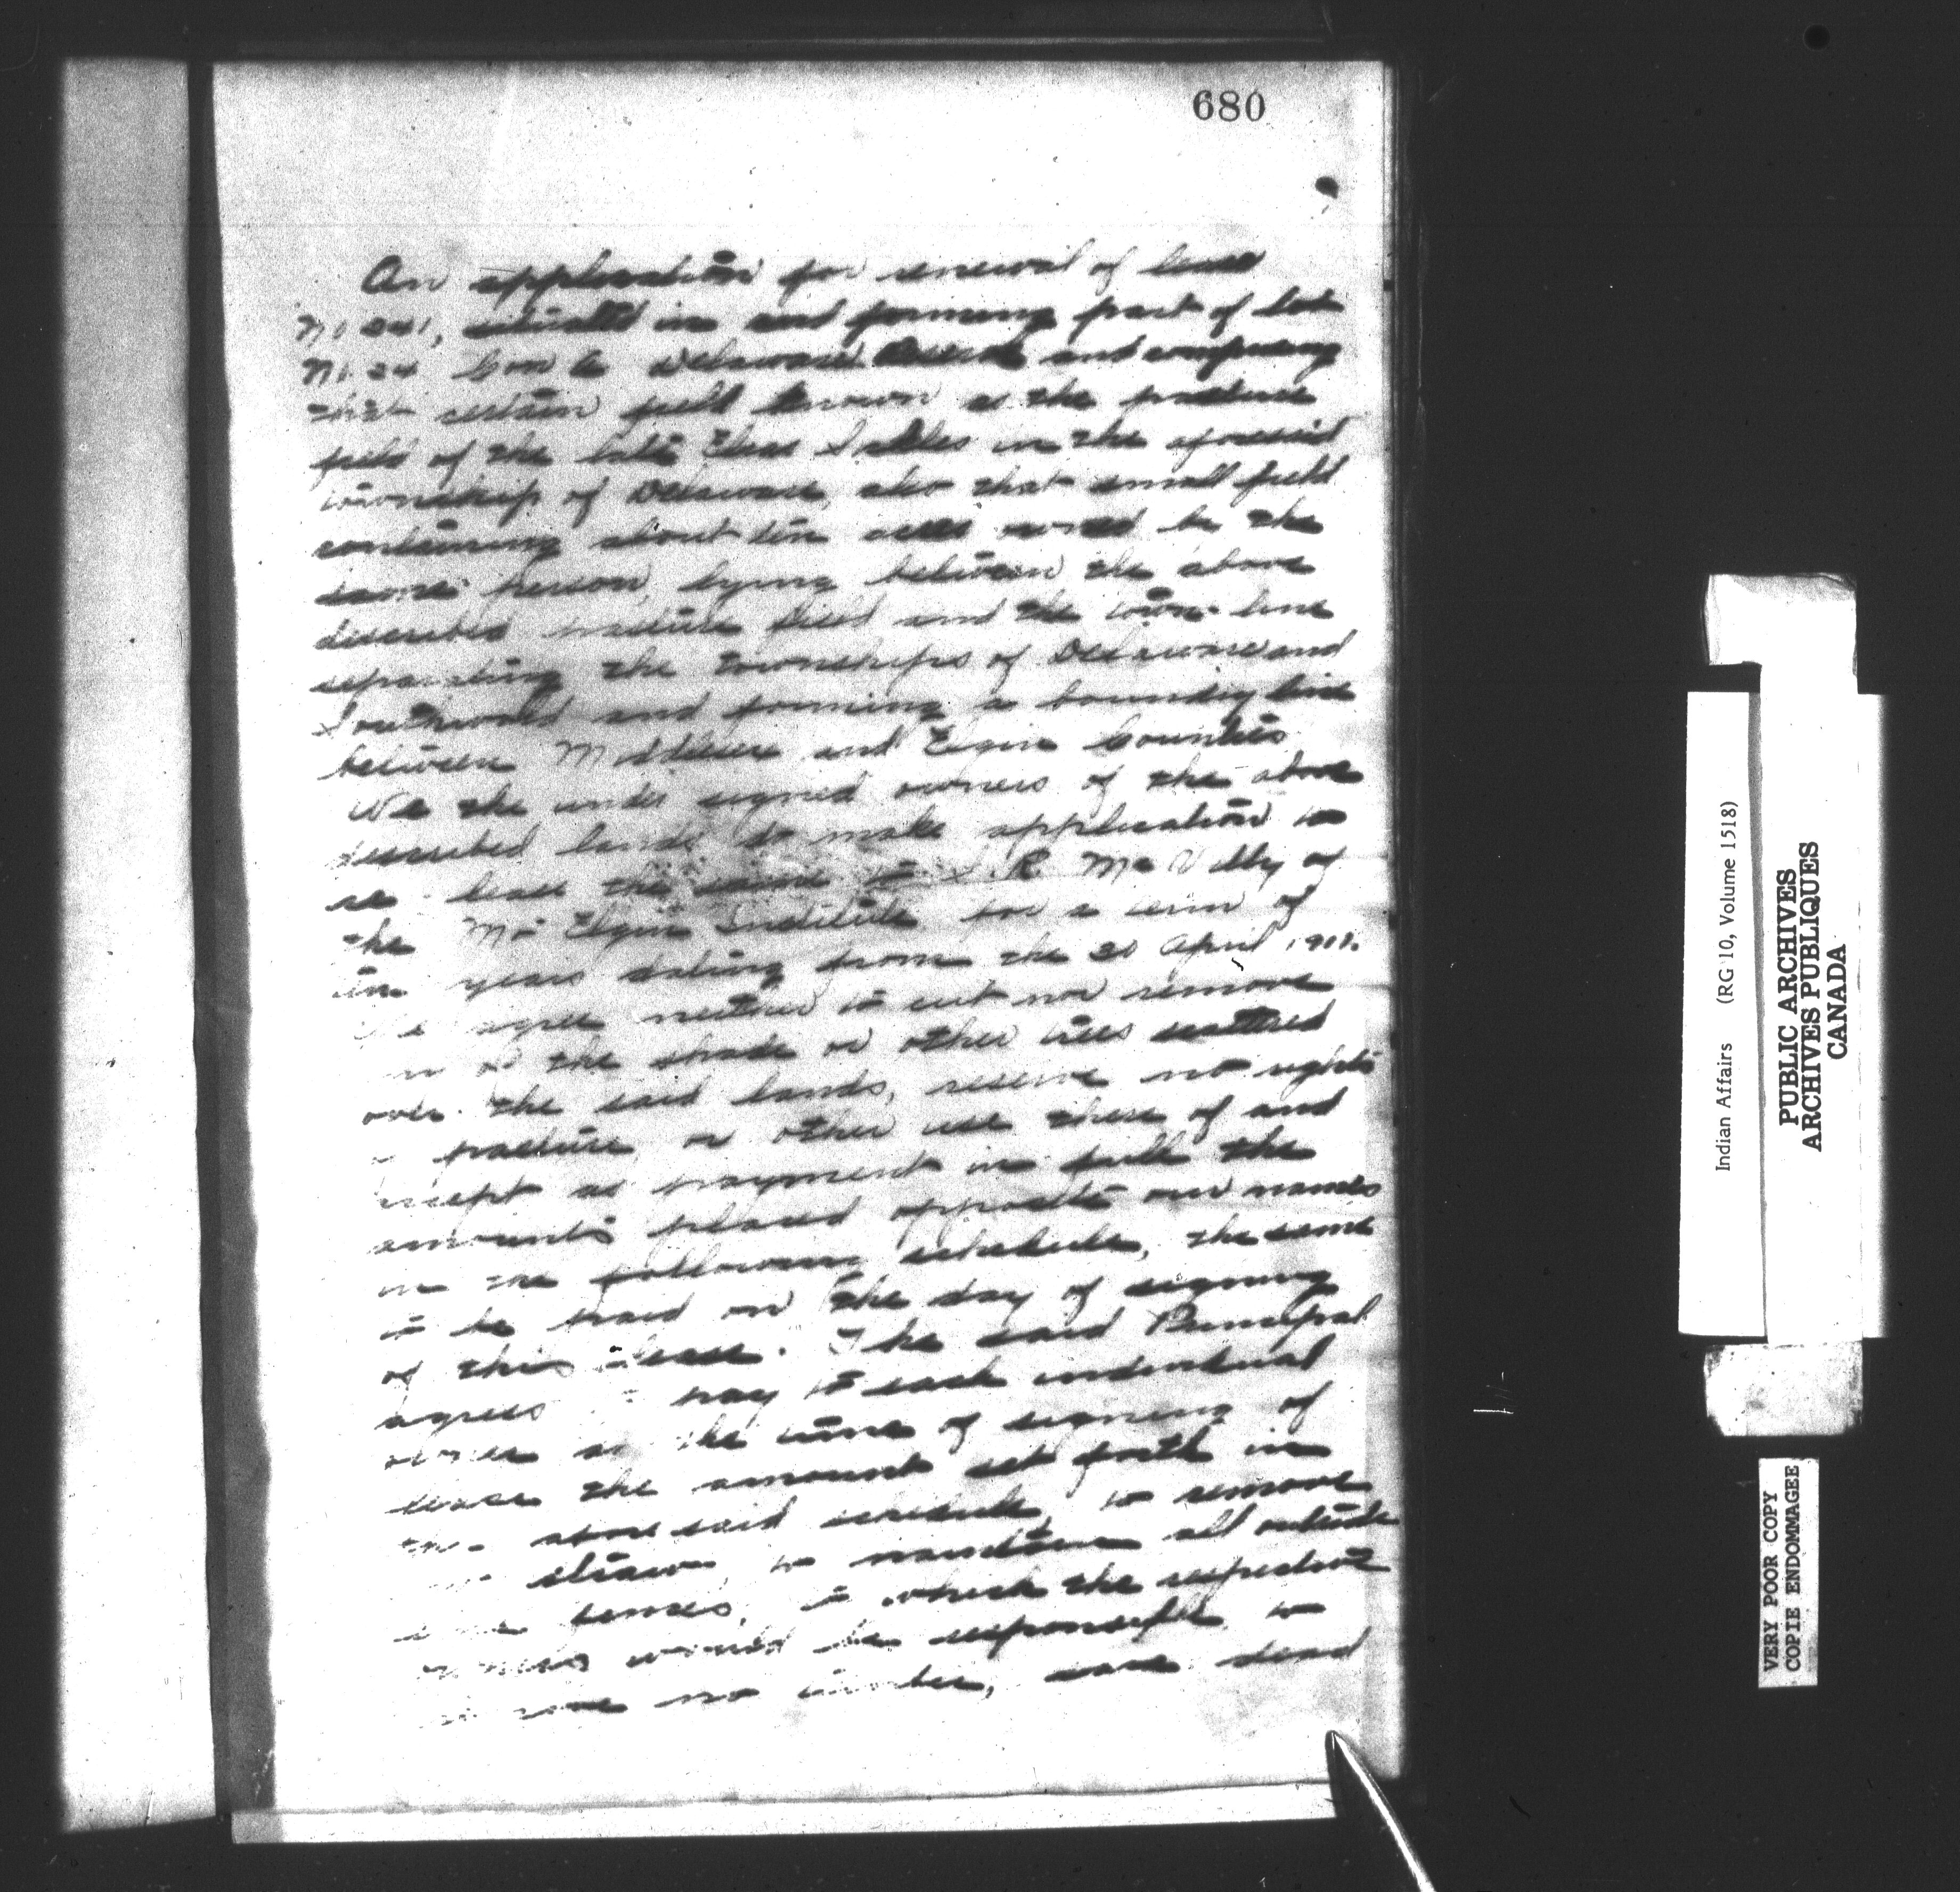 680
An application for renewal of lease
No 241, situated in and forming part of lot
No 24 Con 6 Delaware and comprising
that certain field known as the pasture
field of the late Elias in the aforesaid
township of Delaware, also that small field
containing about ten acres owned by the
same person, lying between the above
described pasture field and the town-line
separating the townships of Delaware and
Southwold and forming a boundry line
between Middlesex and Elgin Counties.
We the under signed owners of the above
described lands do make application to
re-lease the same to R. McVitty of
the Mt Elgin Institute for a term of
years dating from the April
We agree neither to cut nor remove
any of the shade or other trees scattered
over the said lands, reserve no rights
pasture or other use there of and
accept as payment in full the
amounts placed opposite our names
in the following schedule, the same
to be paid on the day of signing
of this lease. The said Principal
agrees to pay to each individual
owner at the time of signing of
lease the amount set forth in
the aforesaid schedule to remove
straw, to maintain all outside
fences, to which the respective
owners would be responsible, to
remove no timber, save dead
Indian Affairs (RG 10, Volume 1518)
PUBLIC ARCHIVES
ARCHIVES PUBLIQUES
CANADA
VERY POOR COPY
COPIE ENDOMMAGEE